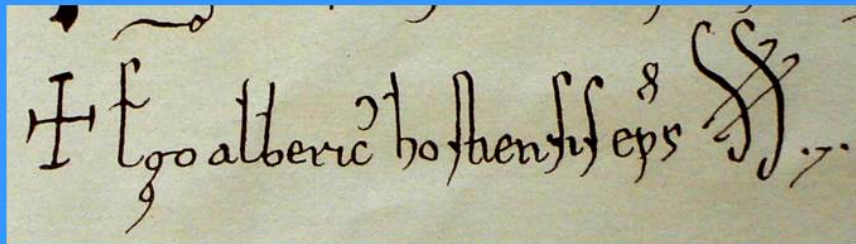 ✝ Ego alberic᾽ hostiensis ep̅s SS .,.